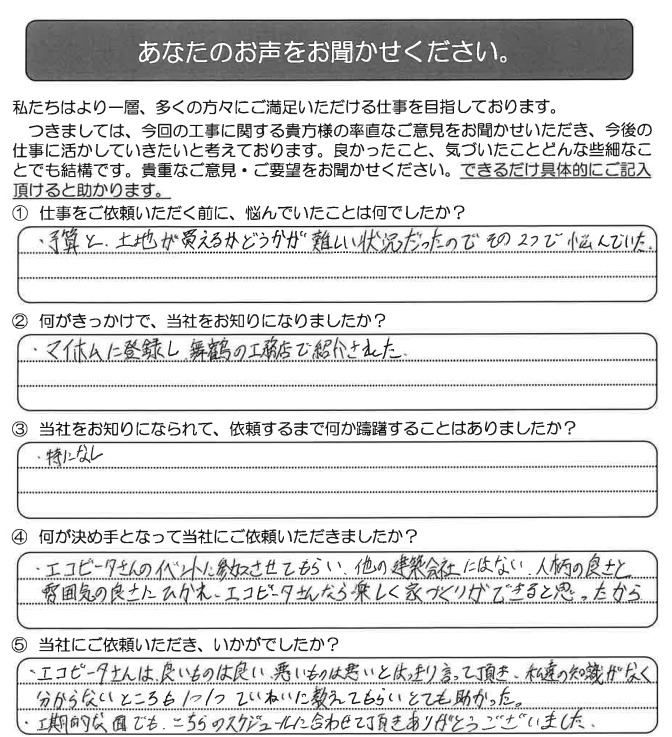 あなたのお声をお聞かせください。
私たちはより一層、多くの方々にご満足いただける仕事を目指しております。
つきましては、今回の工事に関する貴方様の率直なご意見をお聞かせいただき、今後の
仕事に活かしていきたいと考えております。良かったこと、気づいたことどんな些細なこ
とでも結構です。貴重なご意見・ご要望をお聞かせください。できるだけ具体的にご記入
頂けると助かります。
① 仕事をご依頼いただく前に、悩んでいたことは何でしたか？
・予算と、土地が買えるかどうかが難しい状況だったのでその2つで悩んでいた。
② 何がきっかけで、当社をお知りになりましたか？
・マイホムに登録し、舞鶴の工務店で紹介された。
③ 当社をお知りになられて、依頼するまで何か躊躇することはありましたか？
・特になし
④ 何が決め手となって当社にご依頼いただきましたか？
・エコピータさんのイベントに参加させてもらい、他の建築会社にはない、人柄の良さと
雰囲気の良さにひかれ、エコピータさんなら楽しく家づくりができると思ったから
⑤ 当社にご依頼いただき、いかがでしたか？
・エコピータさんは、良いものは良い、悪いものは悪いとはっきり言って頂き、私達の知識がなく
分からないところも1つ1つていねいに教えてもらいとても助かった。
・工期的な面でも、こちらのスケジュールに合わせて頂きありがとうございました。